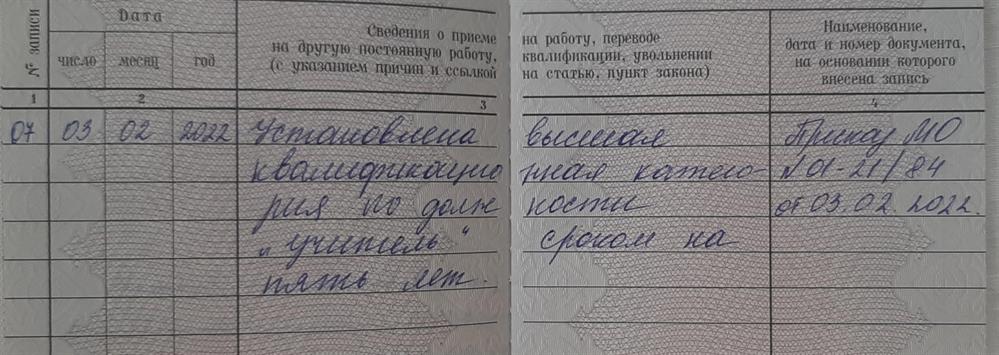 № записи
Дата
число месяц год
Сведения о приеме
на другую постоянную работу,
(с указанием причин и ссылкой
на работу, переводе
квалификации, увольнении
на статью, пункт закона)
Наименование,
дата и номер документа,
на основании которого
внесена запись
1 2 3 4
07 03 02 2022 Установлена высшая Приказ МО
квалификацио нная катего- №01-21/84
рия по долж ности от 03.02.2022.
„учитель“ сроком на
пять лет.